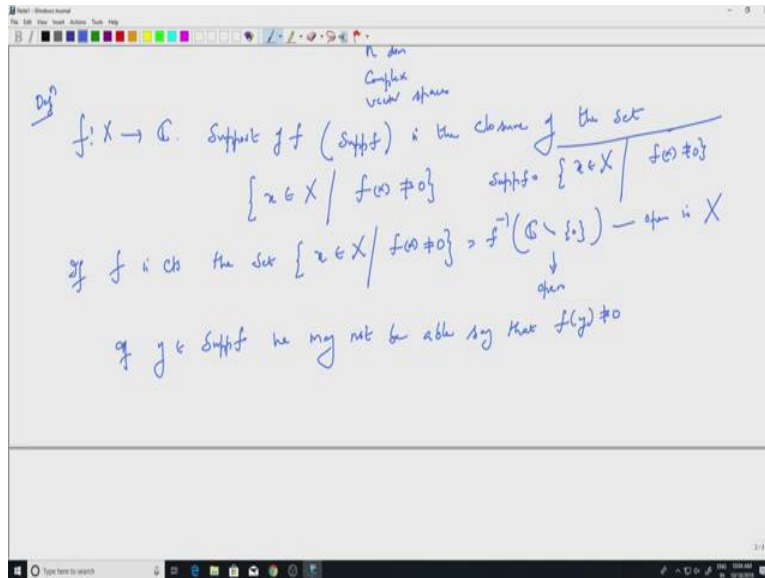 Note1 - Windows Journal
File Edit View Insert Actions Tools Help
n dim
Complex
vector spaces
Defⁿ
f: X → ℂ. Support of f (Suppf) is the closure of the set
{x ∈ X | f(x) ≠ 0} Suppf = {x ∈ X | f(x) ≠ 0}
If f is cts the set {x ∈ X / f(x) ≠ 0} = f⁻¹(ℂ \ {0}) — open in X
↓
open
If y ∈ Suppf we may not be able say that f(y) ≠ 0
Type here to search
ENG
10:04 AM